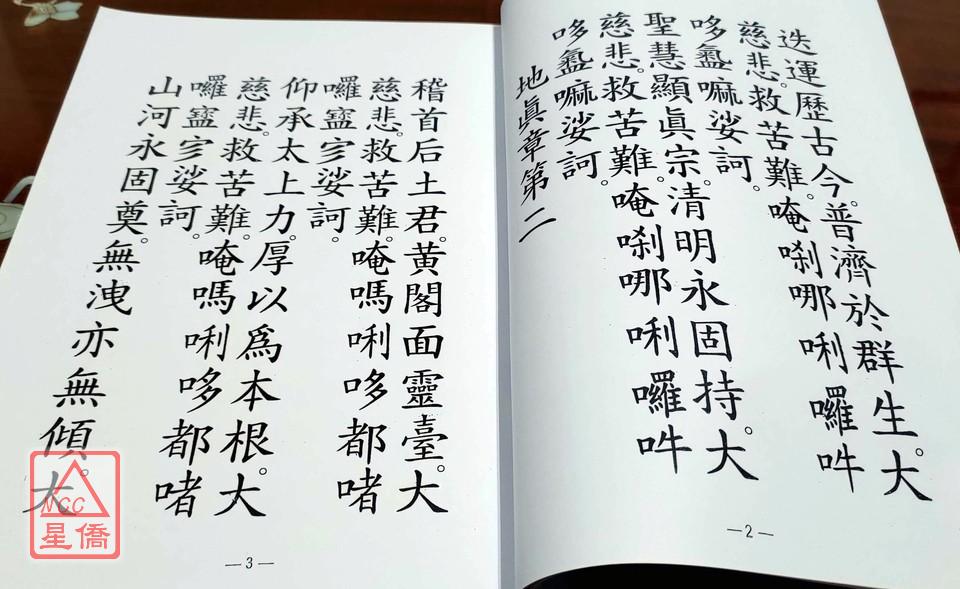 迭運歷古今。普濟於群生。大
慈悲。救苦難。唵剎哪唎囉吽
哆嘛娑訶。
聖慧顯眞宗。清明永固持。大
慈悲。救苦難。唵剎哪唎囉吽
哆嘛娑訶。
地眞章第二
—2—
稽首后土君。黃閣面靈臺。大
慈悲。救苦難。唵嗎唎哆都啫
囉娑訶。
仰承太上力。厚以爲本根。大
慈悲。救苦難。唵嗎唎哆都啫
囉娑訶。
山河永固奠。無洩亦無傾。大
—3—
NCC
星僑